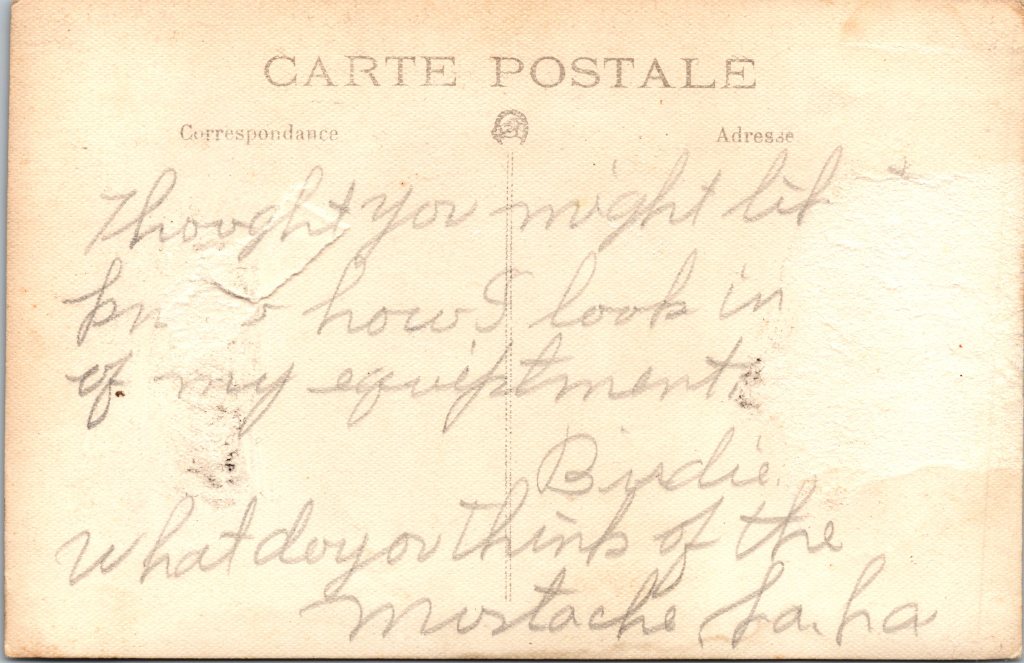 CARTE POSTALE
Correspondance Adresse
Thought you might lik
kn w how I look in
of my equiptment.
Birdie.
What do you think of the
Mustache, ha. ha